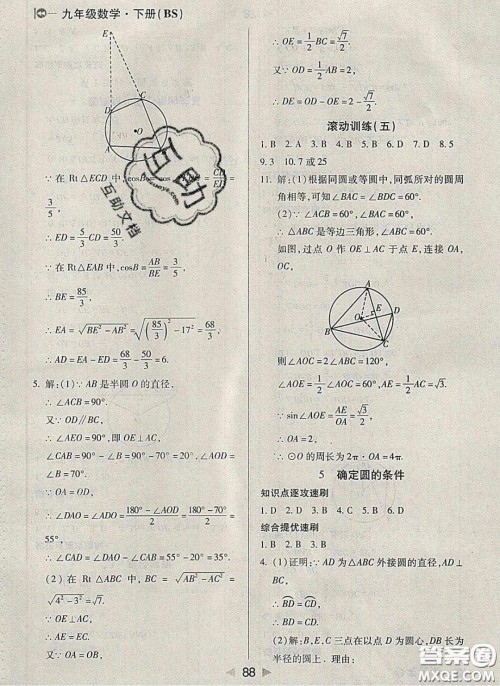 九年级数学·下册(BS)
E
D
C
O
∵在Rt△ECD中,cosB=cos
CD
=
3/5,
∴ED=5/3CD=50/3,
∵在Rt△EAB中,cosB=AB/BE=3/5,
∴BE=85/3,
∴EA=√(BE²-AB²)=√((85/3)²-17²)=68/3,
∴AD=EA-ED=68/3-50/3=6.
5. 解:(1)∵AB是半圆O的直径,
∴∠ACB=90°.
又∵OD∥BC,
∴∠AEO=90°,即OE⊥AC,
∠CAB=90°-∠B=90°-70°=20°,
∵OA=OD,
∴∠DAO=∠ADO=(180°-∠AOD)/2=(180°-70°)/2=55°,
∴∠CAD=∠DAO-∠CAB=55°-20°=35°.
(2)在Rt△ABC中,BC=√(AB²-AC²)=
√(4²-3²)=√7.
∵OE⊥AC,
∴AE=EC.
又∵OA=OB,
∴OE=1/2BC=√7/2.
又∵OD=1/2AB=2,
∴DE=OD-OE=2-√7/2.
滚动训练(五)
1. B 2. A 3. C 4. B 5. B 6. D 7. D 8. 5
9. 3 10. 7或25
11. 解:(1)根据同圆或等圆中,同弧所对的圆周
角相等,可知∠BAC=∠BDC=60°.
(2)∵∠BAC=∠ABC=60°,
∴△ABC是等边三角形,
∴∠ACB=60°.
如图,过点O作OE⊥AC于点E,连接OA,
OC.
A
E
O
D
B
C
则∠AOC=2∠ABC=120°,
∴∠AOE=60°,OA=OC.
∵sin∠AOE=AE/OA=√3/2,
∴OA=2,
∴⊙O的周长为2π·OA=4π.
5 确定圆的条件
知识点逐攻速刷
1. D 2. C 3. B 4. C 5. B 6. D
综合提优速刷
1. B 2. B 3. B
4. (1)证明:∵AD为△ABC外接圆的直径,AD⊥
BC,
∴BD=CD,
∴BD=CD.
(2)解:B,E,C三点在以点D为圆心,以DB长为
半径的圆上.理由:
88
互助
互助文档
答案圈
MXQE.COM